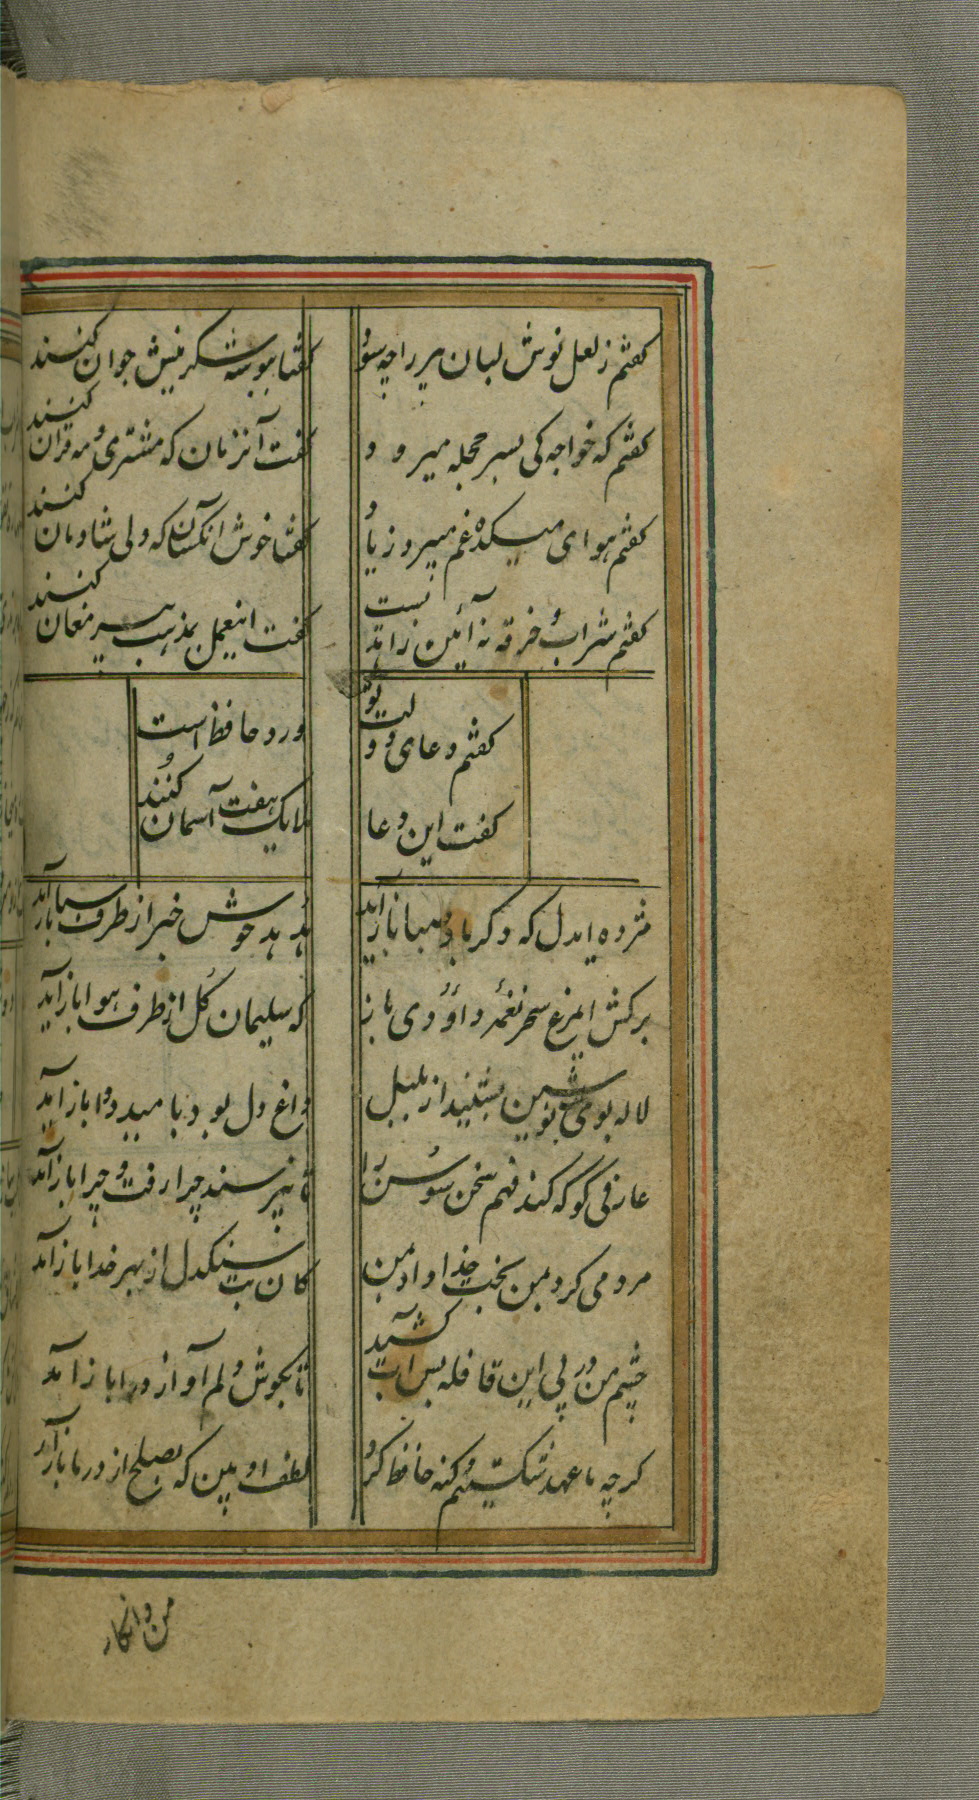 کفتم ز لعل نوش لبان پیر را چه سود
کفتا ببوسه شکرینش جوان کنند
کفتم که خواجه کی بسر حجله میرود
کفت آنزمان که مشتری و مه قران کنند
کفتم هوای میکده غم میبرد ز یاد
کفتا خوش آنکسان که دلی شادمان کنند
کفتم شراب و خرقه نه آئین زاهدیست
کفت اینعمل بمذهب پیر مغان کنند
کفتم دعای دولت تو
ورد حافظ است
کفت این دعا
ملایک هفت آسمان کنند
مژده ایدل که دکر باد صبا باز آید
هدهد خوش خبر از طرف سبا باز آید
برکش ایمرغ سحر نغمهٔ داؤدی باز
که سلیمان کل از طرف هوا باز آید
لاله بوی می نوشین بشنید از بلبل
داغ دل بود بامید دوا باز آید
عارفی کو که کند فهم سخن سوسن را
تا بپرسند چرا رفت و چرا باز آید
مردمی کرد بمن بخت خدا داد بمن
کان بت سنکدل از بهر خدا باز آید
چشم من در پی این قافله بس آب کشید
تا بکوش دلم آواز درا باز آمد
کرچه ما عهد شکستیم و کنه حافظ کرد
لطف او بین که بصلح از در ما باز آمد
من و انکار